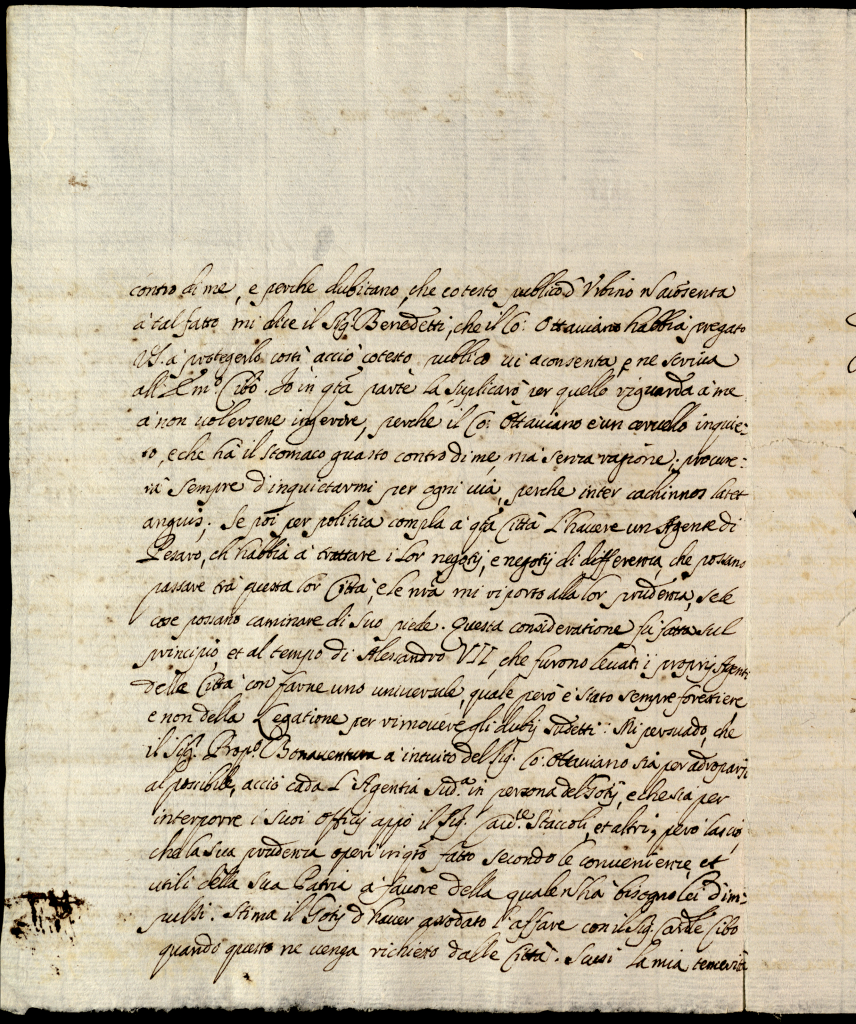 contro di me, e perche dubitano, che cotesto publico d'Urbino n'acosenta
à tal fatto, mi dice il Sig.r Benedetti, che il Co: Ottaviano habbia pregato
V.S. à protegerlo costì acciò cotesto publico vi aconsenta, e ne scriva
all'Em.o Cibò. Io in q.ta parte la suplicarò per quello riguarda à me
à non volersene ingerire, perche il Co: Ottaviano è un cervello inquie=
to, e che hà il stomaco guasto contro di me, mà senza ragione, procure=
rà sempre d'inquietarmi per ogni via, perche inter cachinnos latet
anguis; Se poi per politica compla à q.ta Città l'havere un Agente di
Pesaro, ch'habbia à trattare i lor negotij, e negotij di differenza, che possano
passare trà questa lor Città, e le nr̃a mi riporto alla lor prudenza, se le
cose possano caminare di suo piede. Questa consideratione fù fatta sul
principio, et al tempo di Alessandro VII, che furono levati i proprij Agenti
delle Città con farne uno universale, quale però è stato sempre forestiere
e non della Legatione per rimovere gli dubij sudetti: Mi persuado, che
il Sig.r Prop.o Bonaventura à intuito del Sig.r Co: Ottaviano sia per adroparsi
al posibile, acciò cada l'Agentia sud.a in persona del Gotij, e che sia per
interporre i suoi officij appò il Sig.r Staccoli, et altri, però lascio,
che la sua prudenza operi in q.to fatto secondo le convenienze, et
utili della sua Patria à favore della quale n'hà bisogno lei d'im=
pulsi. Stima il Gotij d'haver assodato l'affare con il Sig.r Card.le Cibo
quando questo ne venga richiesto dalle Città. Scusi la mia temerità